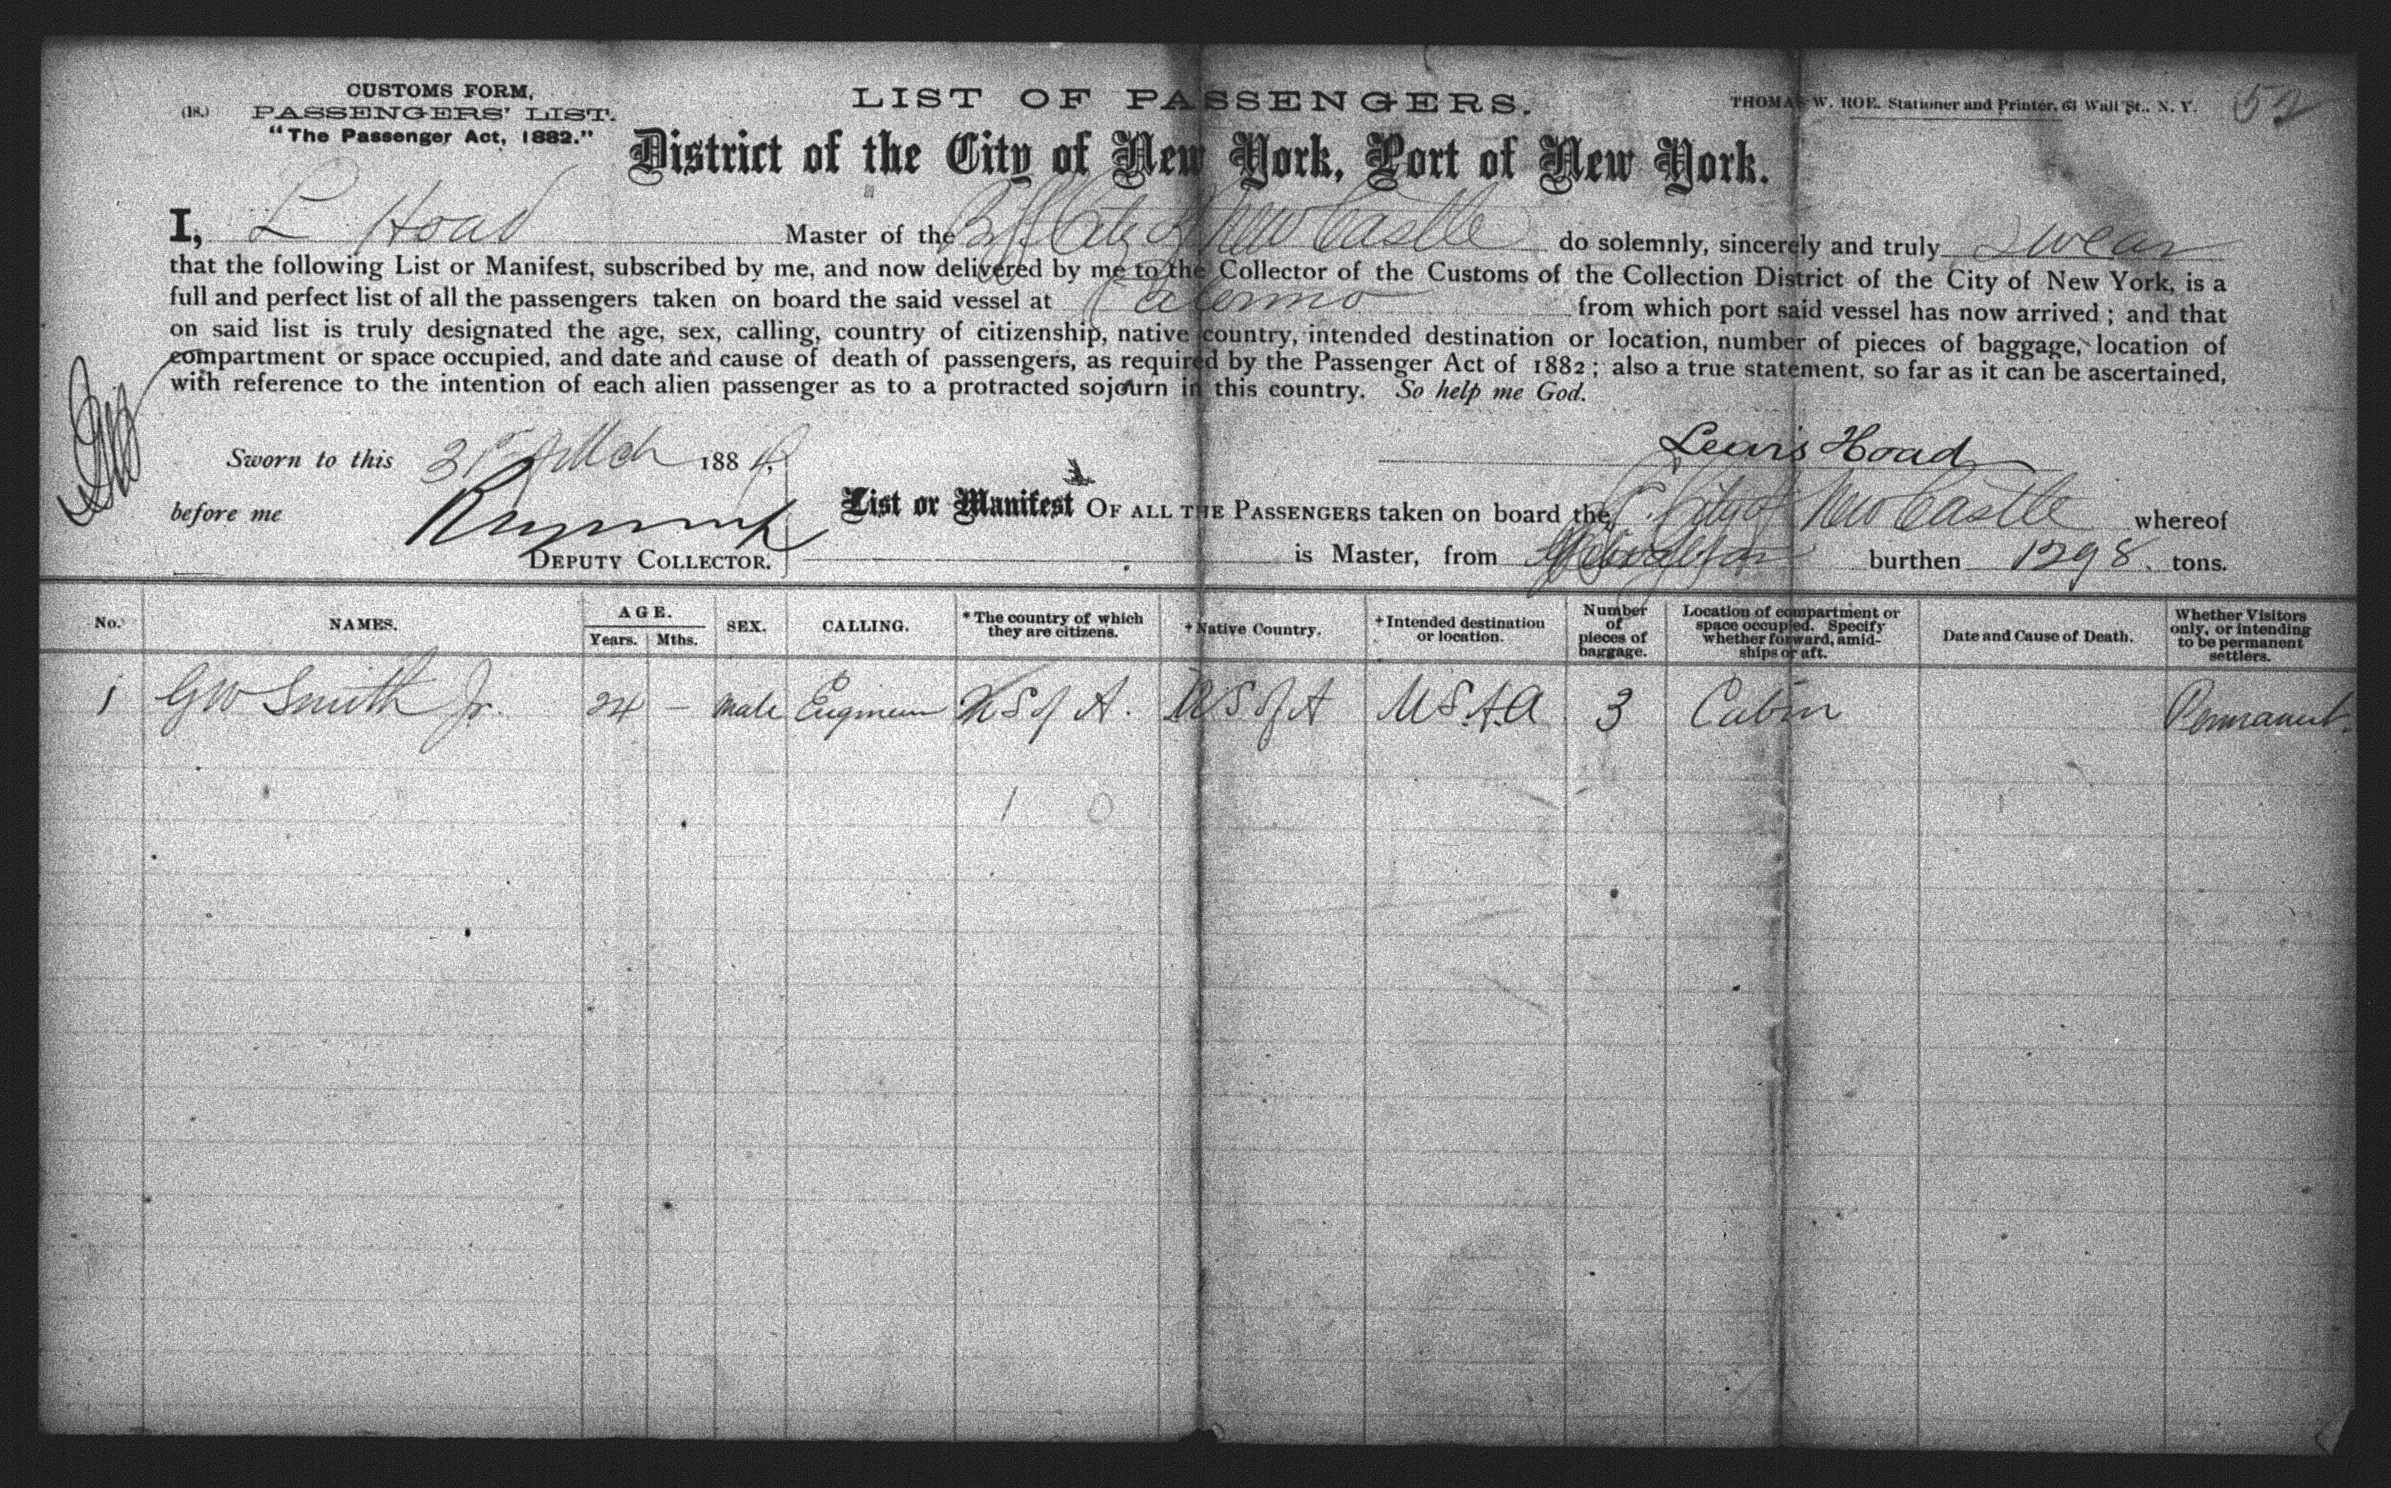 CUSTOMS FORM.
(18.) PASSENGERS' LIST.
"The Passenger Act, 1882."
LIST OF PASSENGERS.
THOMAS W. ROE. Stationer and Printer, 61 Wall St., N. Y. 52
District of the City of New York, Port of New York.
I, L Hoad Master of the City of New Castle do solemnly, sincerely and truly swear
that the following List or Manifest, subscribed by me, and now delivered by me to the Collector of the Customs of the Collection District of the City of New York, is a
full and perfect list of all the passengers taken on board the said vessel at Palermo from which port said vessel has now arrived ; and that
on said list is truly designated the age, sex, calling, country of citizenship, native country, intended destination or location, number of pieces of baggage, location of
compartment or space occupied, and date and cause of death of passengers, as required by the Passenger Act of 1882 ; also a true statement, so far as it can be ascertained,
with reference to the intention of each alien passenger as to a protracted sojourn in this country. So help me God.
Sworn to this 31st Mch 1884,
Lewis Hoad
before me
DEPUTY COLLECTOR.
List or Manifest OF ALL THE PASSENGERS taken on board the City of New Castle whereof
is Master, from burthen 1298 tons.
No. NAMES. AGE. Years. Mths. SEX. CALLING. * The country of which they are citizens. + Native Country. + Intended destination or location. Number of pieces of baggage. Location of compartment or space occupied. Specify whether forward, amidships or aft. Date and Cause of Death. Whether Visitors only, or intending to be permanent settlers.
1 GW Smith Jr. 24 – male Engineer U S of A. U S of A U S. of. A 3 Cabin Permanent.
1 0